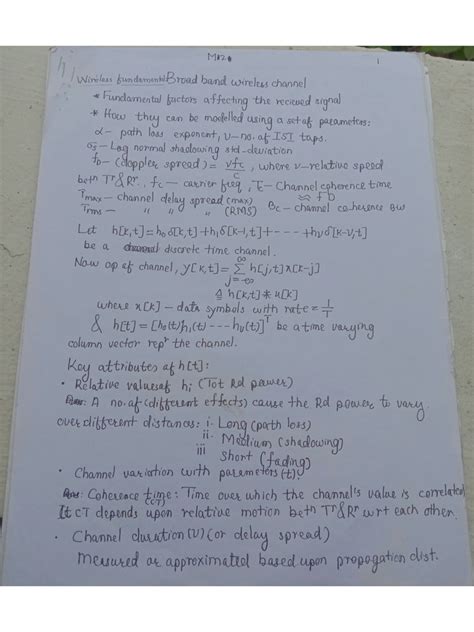 M120
1
Wireless fundamentals Broad band wireless channel
* Fundamental factors affecting the recieved signal
* How they can be modelled using a set of parameters:
α- path loss exponent, ν-no. of ISI taps.
σs - Log normal shadowing std-deviation
fD - (doppler spread) = νfc/c, where ν-relative speed
betn Tr & Rr. fc - carrier freq, Tc - Channel coherence time
τmax - channel delay spread (max) ≈ 1/fD
τrms - " " " (RMS) Bc - channel coherence BW
Let h[k,t] = h0 δ[k,t] + h1 δ[k-1,t] + ---- + hν δ[k-ν,t]
be a discrete time channel.
Now op of channel, y[k,t] = ∞ Σ j=-∞ h[j,t] x[k-j]
≜ h[k,t] * x[k]
where x[k] - data symbols with rate = 1/T
& h[t] = [h0(t) h1(t) --- hν(t)]T be a time varying
column vector repr the channel.
Key attributes of h[t]:
• Relative values of hi (Tot Rd power)
Ans: A no. of (different effects) cause the Rd power to vary
over different distances: i. Long (path loss)
ii. Medium (shadowing)
iii Short (fading)
• Channel variation with parameters (t)
Ans: Coherence time (CT): Time over which the channel's value is correlated
It CT depends upon relative motion betn Tr & Rr wrt each other.
• Channel duration (ν) (or delay spread)
Measured or approximated based upon propogation dist.